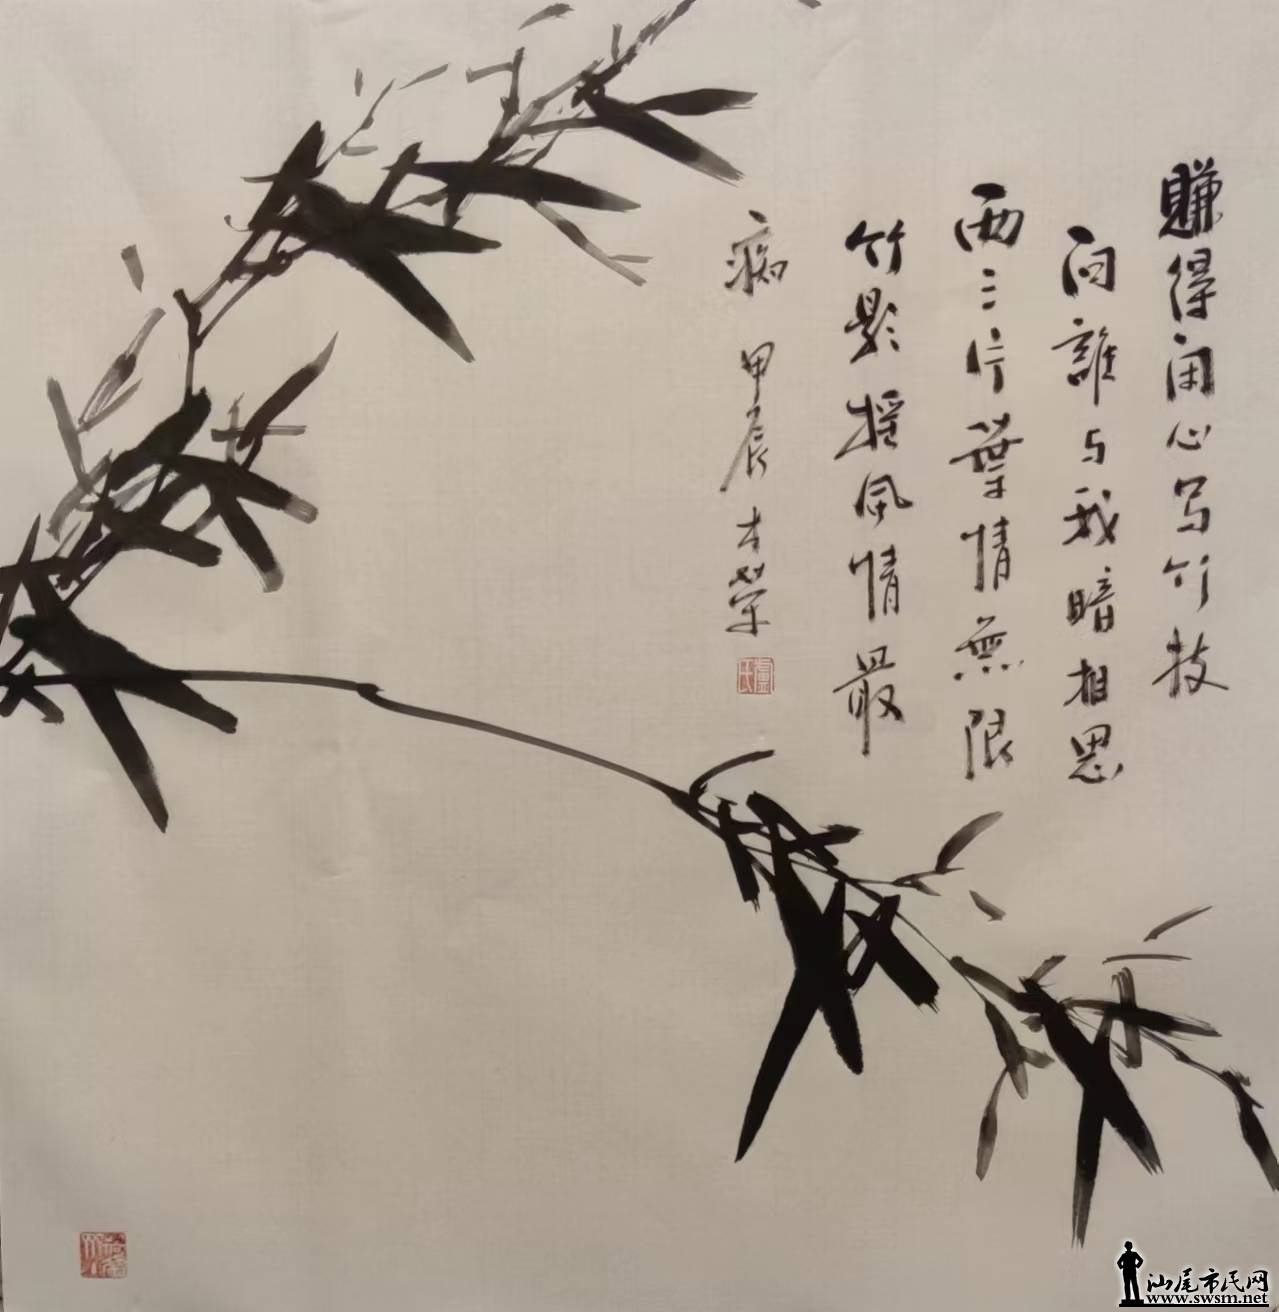 賺得闲心写竹技
问誰与我暗相思
两三片葉情無限
竹影摇风情最
痴 甲辰才荣
盧氏
汕尾市民网
www.swsm.net